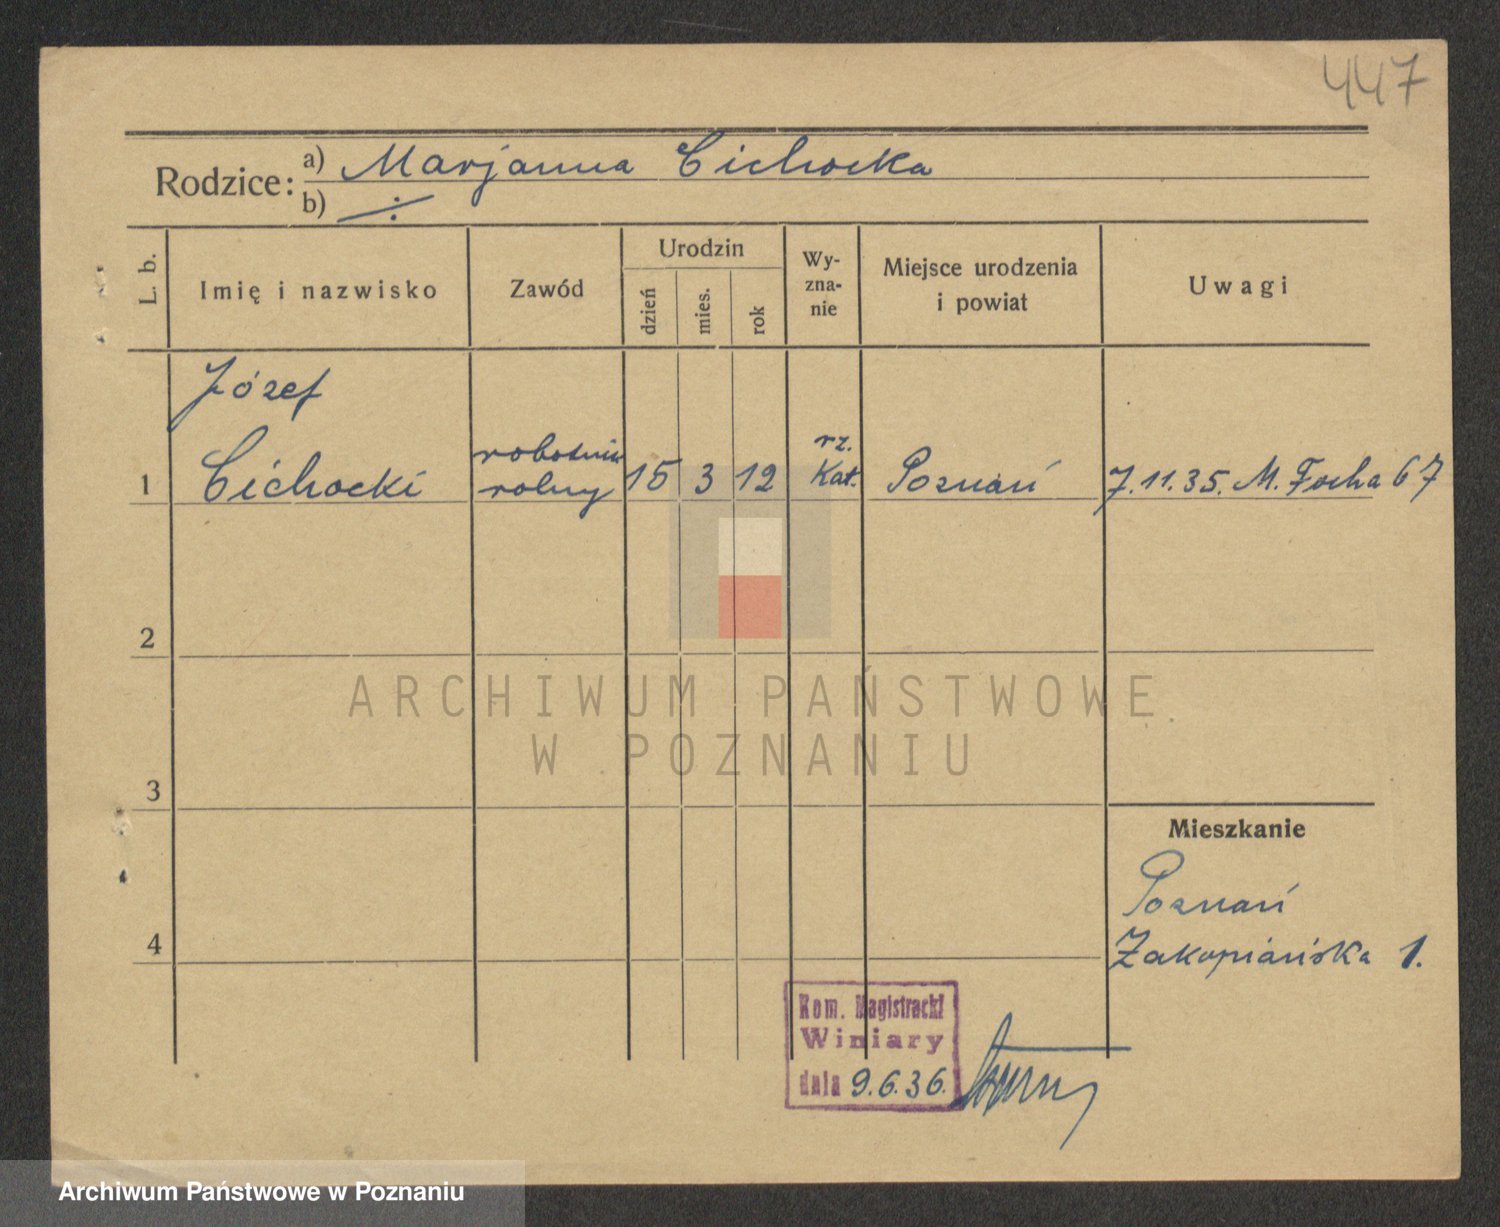 447
Rodzice: a) Marjanna Cichocka
b) ·/·
L. b. Imię i nazwisko Zawód Urodzin dzień mies. rok Wy-zna-nie Miejsce urodzenia i powiat Uwagi
Józef
1 Cichocki robotnik rolny 15 3 12 rz. Kat. Poznań 7.11.35. M. Focha 67
2
ARCHIWUM PAŃSTWOWE
W POZNANIU
3
Mieszkanie
Poznań
4 Zakopiańska 1.
Kom. Magistracki
Winiary
dnia 9.6.36.
Archiwum Państwowe w Poznaniu